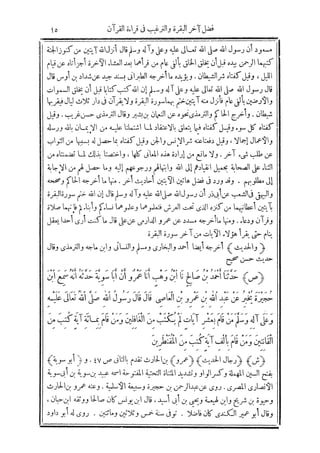 فضل آخر البقرة والترغيب فى قراءة القرآن ١٥
مسعود أن رسول الله صلى الله تعالى عليه وعلى وآله وسلم قال أنزل الله آيتين من كنوز الجنة
كتبهما الرحمن بيده قبل أن يخلق الخلق بألفى عام من قرأهما بعد العشاء الآخرة أجزأتاه عن قيام
الليل ، وقيل كفتاه شر الشيطان . ويؤيده ما أخرجه الطبرانى بسند جيد عن شداد بن أوس قال
قال رسول الله صلى الله تعالى عليه وعلى آله وسلم إن الله كتب كتابا قبل أن يخلق السموات
والأرضين بألفى عام فأنزل منه آيتين ختم بهما سورة البقرة ولا يقرآن فى دار ثلاث ليال فيقربها
شيطان . وأخرج الحاكم والترمذى نحوه عن النعمان بن بشير وقال الترمذى حسن غريب . وقيل
كفتاه كل سوء وقيل كفتاه فيما يتعلق بالاعتقاد لما اشتملتا عليه من الإيمان بالله ورسله
والأعمال إجمالا . وقيل دفعتاعنه شر الإنس والجن وقيل كفتاه بما حصل له بسببهما من الثواب
عن طلب شىء آخر . ولا مانع من إرادة هذه المعانى كلها . واختصتا بذلك لما تضمنتاه من
الثناء على الصحابة بجميل انقيادهم إلى الله وابتهالهم ورجوعهم إليه وما حصل لهم من الإجابة
إلى مطلوبهم . وقد ورد فى فضل هاتين الآيتين أحاديث أخر . منها ما أخرجه الحاكم وصححه
والبيهقى فى الشعب عن أبى ذر أن رسول الله صلى الله عليه وآله وسلم قال إن الله ختم سورة البقرة
بآيتين أعطانيهما من كنزه الذى تحت العرش فتعلموهما وعلموهما نساءكم وأبناءكم فإنهما صلاة
وقرآن ودعاء . ومنها ما أخرجه مسدد عن عمرو والدارمى عن على قال ما كنت أرى أحدا يعقل
ينام حتى يقرأ هؤلاء الآيات من آخر سورة البقرة
﴿والحديث﴾ أخرجه أيضا أحمد والبخارى ومسلم والنسائى وابن ماجه والترمذى وقال
حديث حسن صحيح
﴿ص﴾ حَدَّثَنَا أَحْمَدُ بْنُ صَالِحٍ نَا ابْنُ وَهْبٍ أَنَا عَمْرٌو أَنَّ أَبَا سَوِيَّةَ حَدَّثَهُ أَنَّهُ سَمِعَ ابْنَ
حُجَيْرَةَ يُخْبِرُ عَنْ عَبْدِ اللهِ بْنِ عَمْرِو بْنِ الْعَاصِى قَالَ قَالَ رَسُولُ اللهِ صَلَّى اللهُ تَعَالَى عَلَيْهِ
وَعَلَى آلِهِ وَسَلَّمَ مَنْ قَامَ بِعَشْرِ آيَاتٍ لَمْ يُكْتَبْ مِنَ الْغَافِلِينَ وَمَنْ قَامَ بِمِائَةِ آيَةٍ كُتِبَ مِنَ
الْقَانِتِينَ وَمَنْ قَامَ بِأَلْفِ آيَةٍ كُتِبَ مِنَ الْمُقَنْطِرِينَ
﴿ش﴾ ﴿رجال الحديث﴾ ﴿عمرو﴾ بن الحارث تقدم بالثانى ص ٤٧ . و ﴿أبو سوية﴾
بفتح السين المهملة وكسر الواو وتشديد المثناة التحتية المفتوحة اسمه عبيد بن سوية بن أبى سوية
الأنصارى المصرى . روى عن عبد الرحمن بن حجيرة وسبيعة الأسلمية . وعنه عمرو بن الحارث
وحيوة بن شريح وابن لهيعة ويحيى بن أبى أسيد . قال ابن يونس كان صالحا ووثقه ابن حبان ،
وقال أبو عمير الكندى كان فاضلا . توفى سنة خمس وثلاثين ومائتين . روى له أبو داود